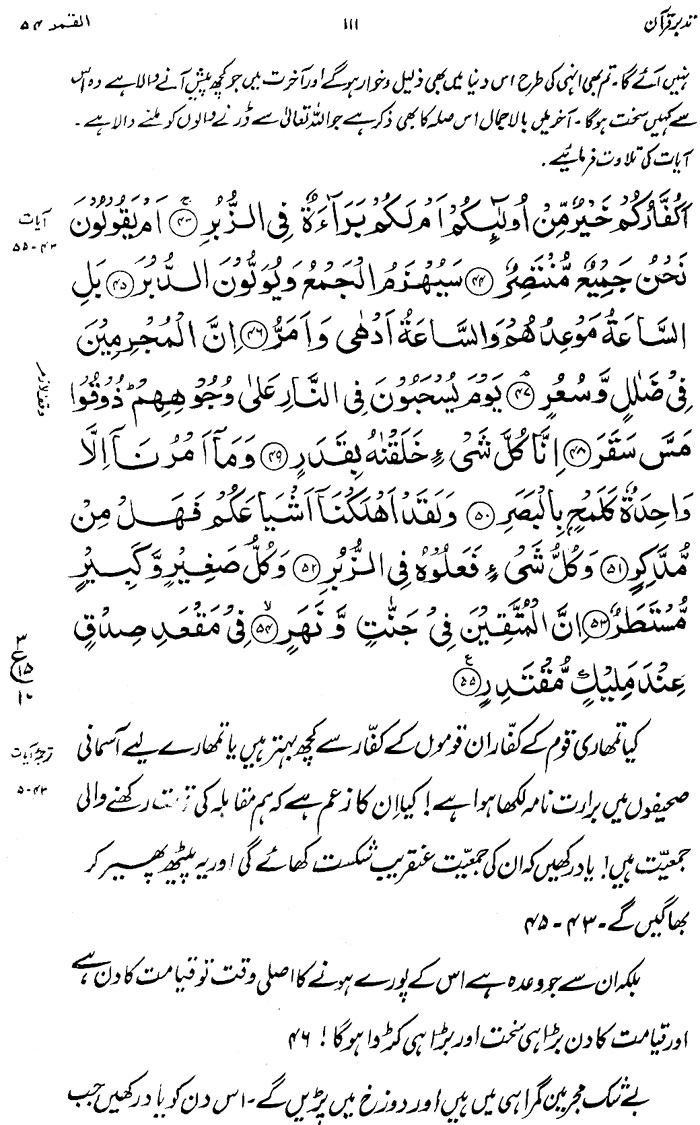 تدبر قرآن ۱۱۱ القمر ۵۴
نہیں آئے گا۔ تم بھی انہی کی طرح اس دنیا میں بھی ذلیل و خوار ہو گے اور آخرت میں جو کچھ پیش آنے والا ہے وہ اس
سے کہیں سخت ہوگا۔ آخر میں بالاجمال اس صلہ کا بھی ذکر ہے جو اللہ تعالیٰ سے ڈرنے والوں کو ملنے والا ہے۔
آیات کی تلاوت فرمائیے۔
آیات
۴۳-۵۵
اَكُفَّارُكُمْ خَيْرٌ مِّنْ اُولٰٓئِكُمْ اَمْ لَكُمْ بَرَآءَةٌ فِى الزُّبُرِ ۝۴۳ اَمْ يَقُوْلُوْنَ
نَحْنُ جَمِيْعٌ مُّنْتَصِرٌ ۝۴۴ سَيُهْزَمُ الْجَمْعُ وَيُوَلُّوْنَ الدُّبُرَ ۝۴۵ بَلِ
السَّاعَةُ مَوْعِدُهُمْ وَالسَّاعَةُ اَدْهٰى وَاَمَرُّ ۝۴۶ اِنَّ الْمُجْرِمِيْنَ
فِىْ ضَلٰلٍ وَّسُعُرٍ ۝۴۷ يَوْمَ يُسْحَبُوْنَ فِى النَّارِ عَلٰى وُجُوْهِهِمْ ؕ ذُوْقُوْا
وقف لازم
مَسَّ سَقَرَ ۝۴۸ اِنَّا كُلَّ شَىْءٍ خَلَقْنٰهُ بِقَدَرٍ ۝۴۹ وَمَآ اَمْرُنَآ اِلَّا
وَاحِدَةٌ كَلَمْحٍۭ بِالْبَصَرِ ۝۵۰ وَلَقَدْ اَهْلَكْنَآ اَشْيَاعَكُمْ فَهَلْ مِنْ
مُّدَّكِرٍ ۝۵۱ وَكُلُّ شَىْءٍ فَعَلُوْهُ فِى الزُّبُرِ ۝۵۲ وَكُلُّ صَغِيْرٍ وَّكَبِيْرٍ
مُّسْتَطَرٌ ۝۵۳ اِنَّ الْمُتَّقِيْنَ فِىْ جَنّٰتٍ وَّنَهَرٍ ۝۵۴ فِىْ مَقْعَدِ صِدْقٍ
عِنْدَ مَلِيْكٍ مُّقْتَدِرٍ ۝۵۵
۳
ع ۱۵
۱۰
ترجمۂ آیات
۴۳-۵
کیا تمھاری قوم کے کفار ان قوموں کے کفّار سے کچھ بہتر ہیں یا تمھارے لیے آسمانی
صحیفوں میں برارت نامہ لکھا ہوا ہے! کیا ان کا زعم ہے کہ ہم مقابلہ کی رکھنے والی
جمعیّت ہیں! یاد رکھیں کہ ان کی جمعیّت عنقریب شکست کھائے گی اور یہ پیٹھ پھیر کر
بھاگیں گے۔ ۴۳ - ۴۵
بلکہ ان سے جو وعدہ ہے اس کے پورے ہونے کا اصلی وقت تو قیامت کا دن ہے
اور قیامت کا دن بڑا ہی سخت اور بڑا ہی کڑوا ہوگا! ۴۶
بے شک مجرمین گمراہی میں ہیں اور دوزخ میں پڑیں گے۔ اس دن کو یاد رکھیں جب